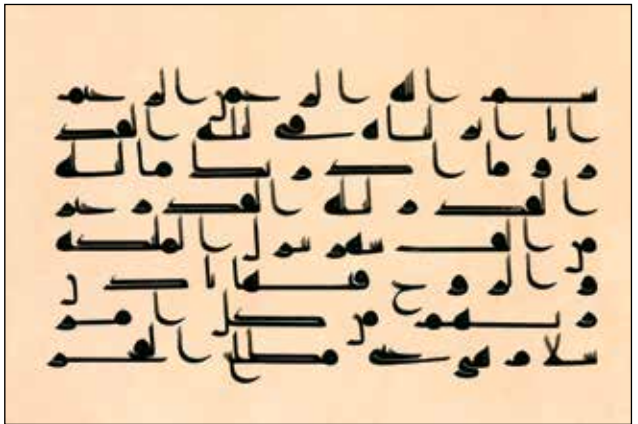 بسم الله الرحمن الرحيم
انا انزلناه في ليلة القد
ر و ما ادريك ما ليلة
القدر ليلة القدر خير
من الف شهر تنزل الملئكة
و الروح فيها باذن ر
بهم من كل امر
سلام هي حتى مطلع الفجر